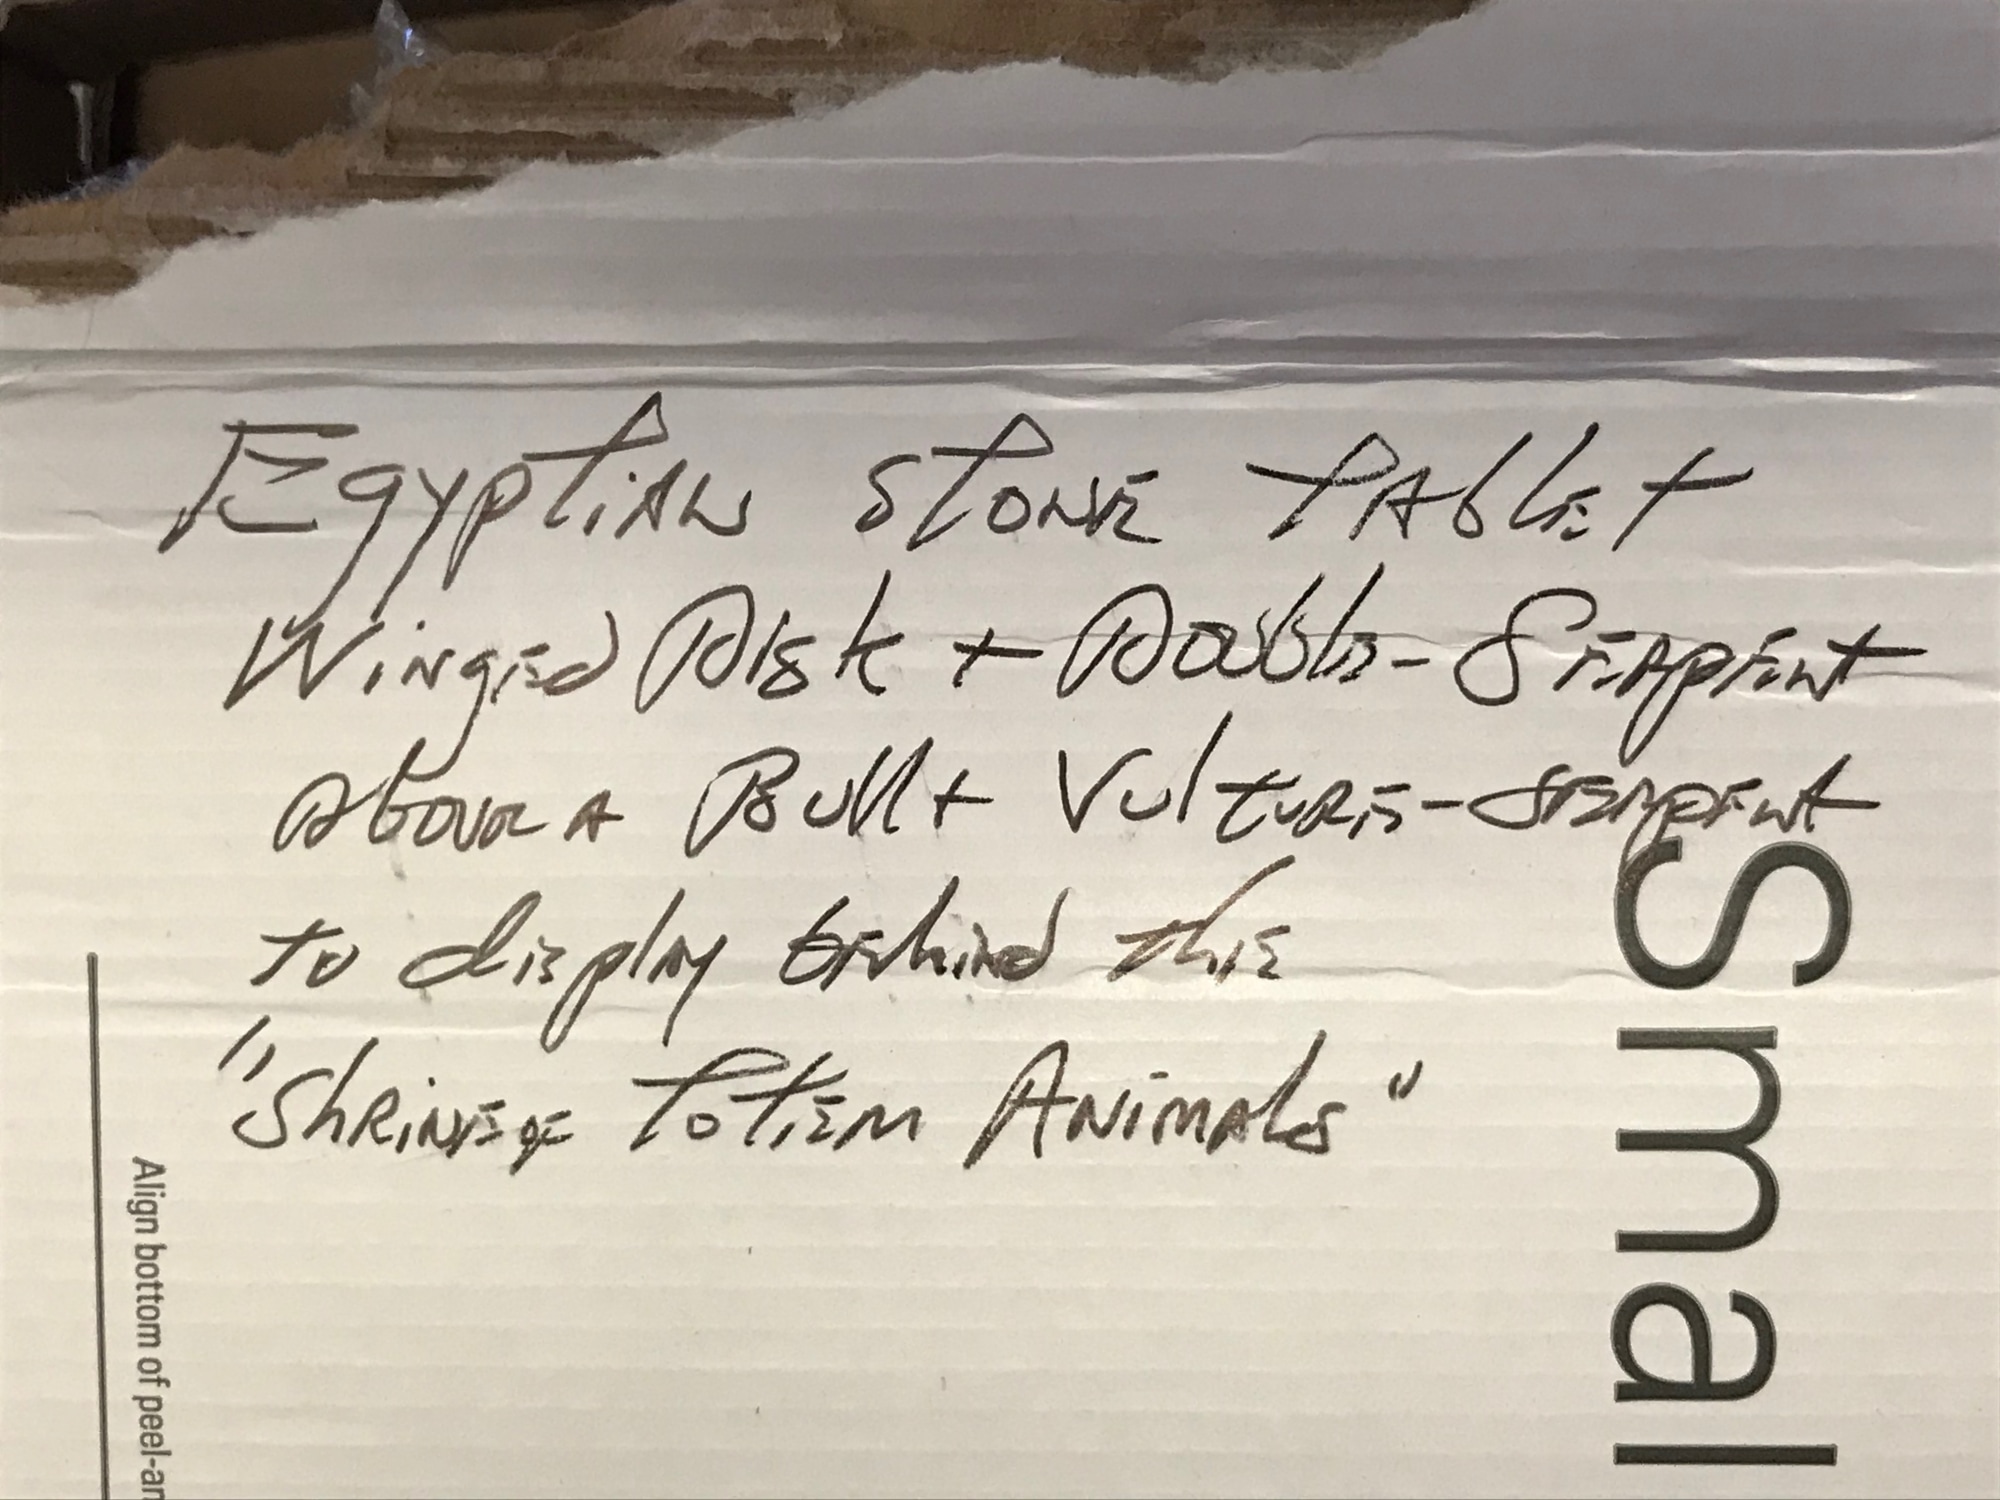 Egyptian stone tablet
Winged Disk + Double-Serpent
Above a Bull + Vulture-Serpent
to display behind the
"Shrine of Totem Animals"
Smal
Align bottom of peel-an